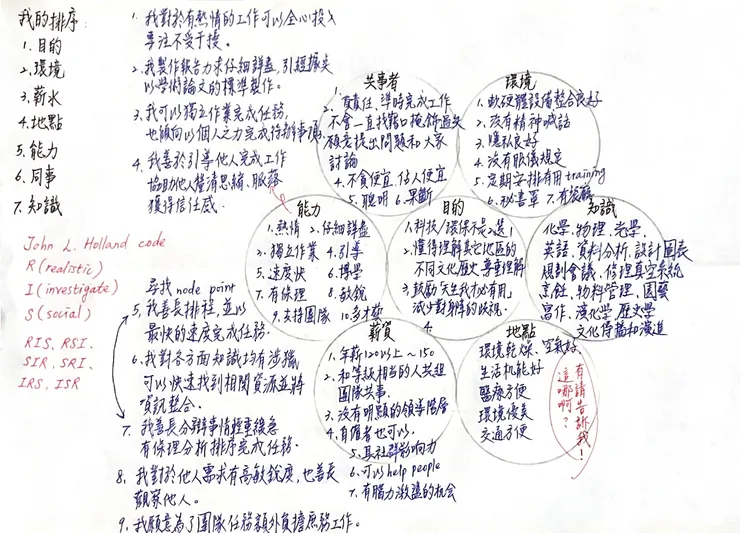 我的排序:
1. 目的
2. 環境
3. 薪水
4. 地點
5. 能力
6. 同事
7. 知識
John L. Holland code
R (realistic)
I (investigate)
S (social)
RIS, RSI,
SIR, SRI,
IRS, ISR
1. 我對於有熱情的工作可以全心投入
專注不受干擾。
2. 我製作報告力求仔細詳盡,引經據典
以學術論文的標準製作。
3. 我可以獨立作業完成任務,
也傾向以個人之力完成待辦事項
4. 我善於引導他人完成工作
協助他人釐清思緒、脈絡
獲得信任感。
尋找 node point
5. 我善長排程,並以
最快的速度完成任務.
6. 我對各方面知識均有涉獵
可以快速找到相關資源並將
資訊整合.
7. 我善長分辨事情輕重緩急
有條理分析排序完成任務.
8. 我對於他人需求有高敏銳度,也善長
觀察他人。
9. 我願意為了團隊任務額外負擔庶務工作。
共事者
1. 負責任、準時完成工作
2. 不會一直找藉口掩飾過失
3. 願意提出問題和大家
討論
4. 不貪便宜、佔人便宜
5. 聰明 6. 果斷
環境
1. 軟硬體設備整合良好
2. 沒有精神喊話
3. 隱私良好
4. 沒有服儀規定
5. 定期安排有用 training
6. 秘書單
能力
1. 熱情 2. 仔細詳盡
3. 獨立作業 4. 引導
5. 速度快 6. 博學
7. 有條理 8. 敏銳
9. 支持團隊 10. 多才藝
目的
1. 科技/環保不是2選1
2. 懂得理解其它地區的
不同文化歷史 尊重理解
3. 鼓勵「天生我才必有用」
減少對身障的歧視.
4.
知識
化學、物理、光學、
英語、資料分析、設計圖表
規劃會議、修理真空系統
烹飪、物料管理、園藝
寫作、漢化學、歷史學
文化傳播和演進
薪資
1. 年薪120以上~150
2. 和等級相當的人共組
團隊共事.
3. 沒有明顯的領導階層
4. 有隱者也可以,
5. 具社群影響力
6. 可以 help people
7. 有腦力激盪的机會
地點
環境乾燥、空氣好、
生活机能好
醫療方便
環境優美
交通方便
有請告訴我!
這哪啊?